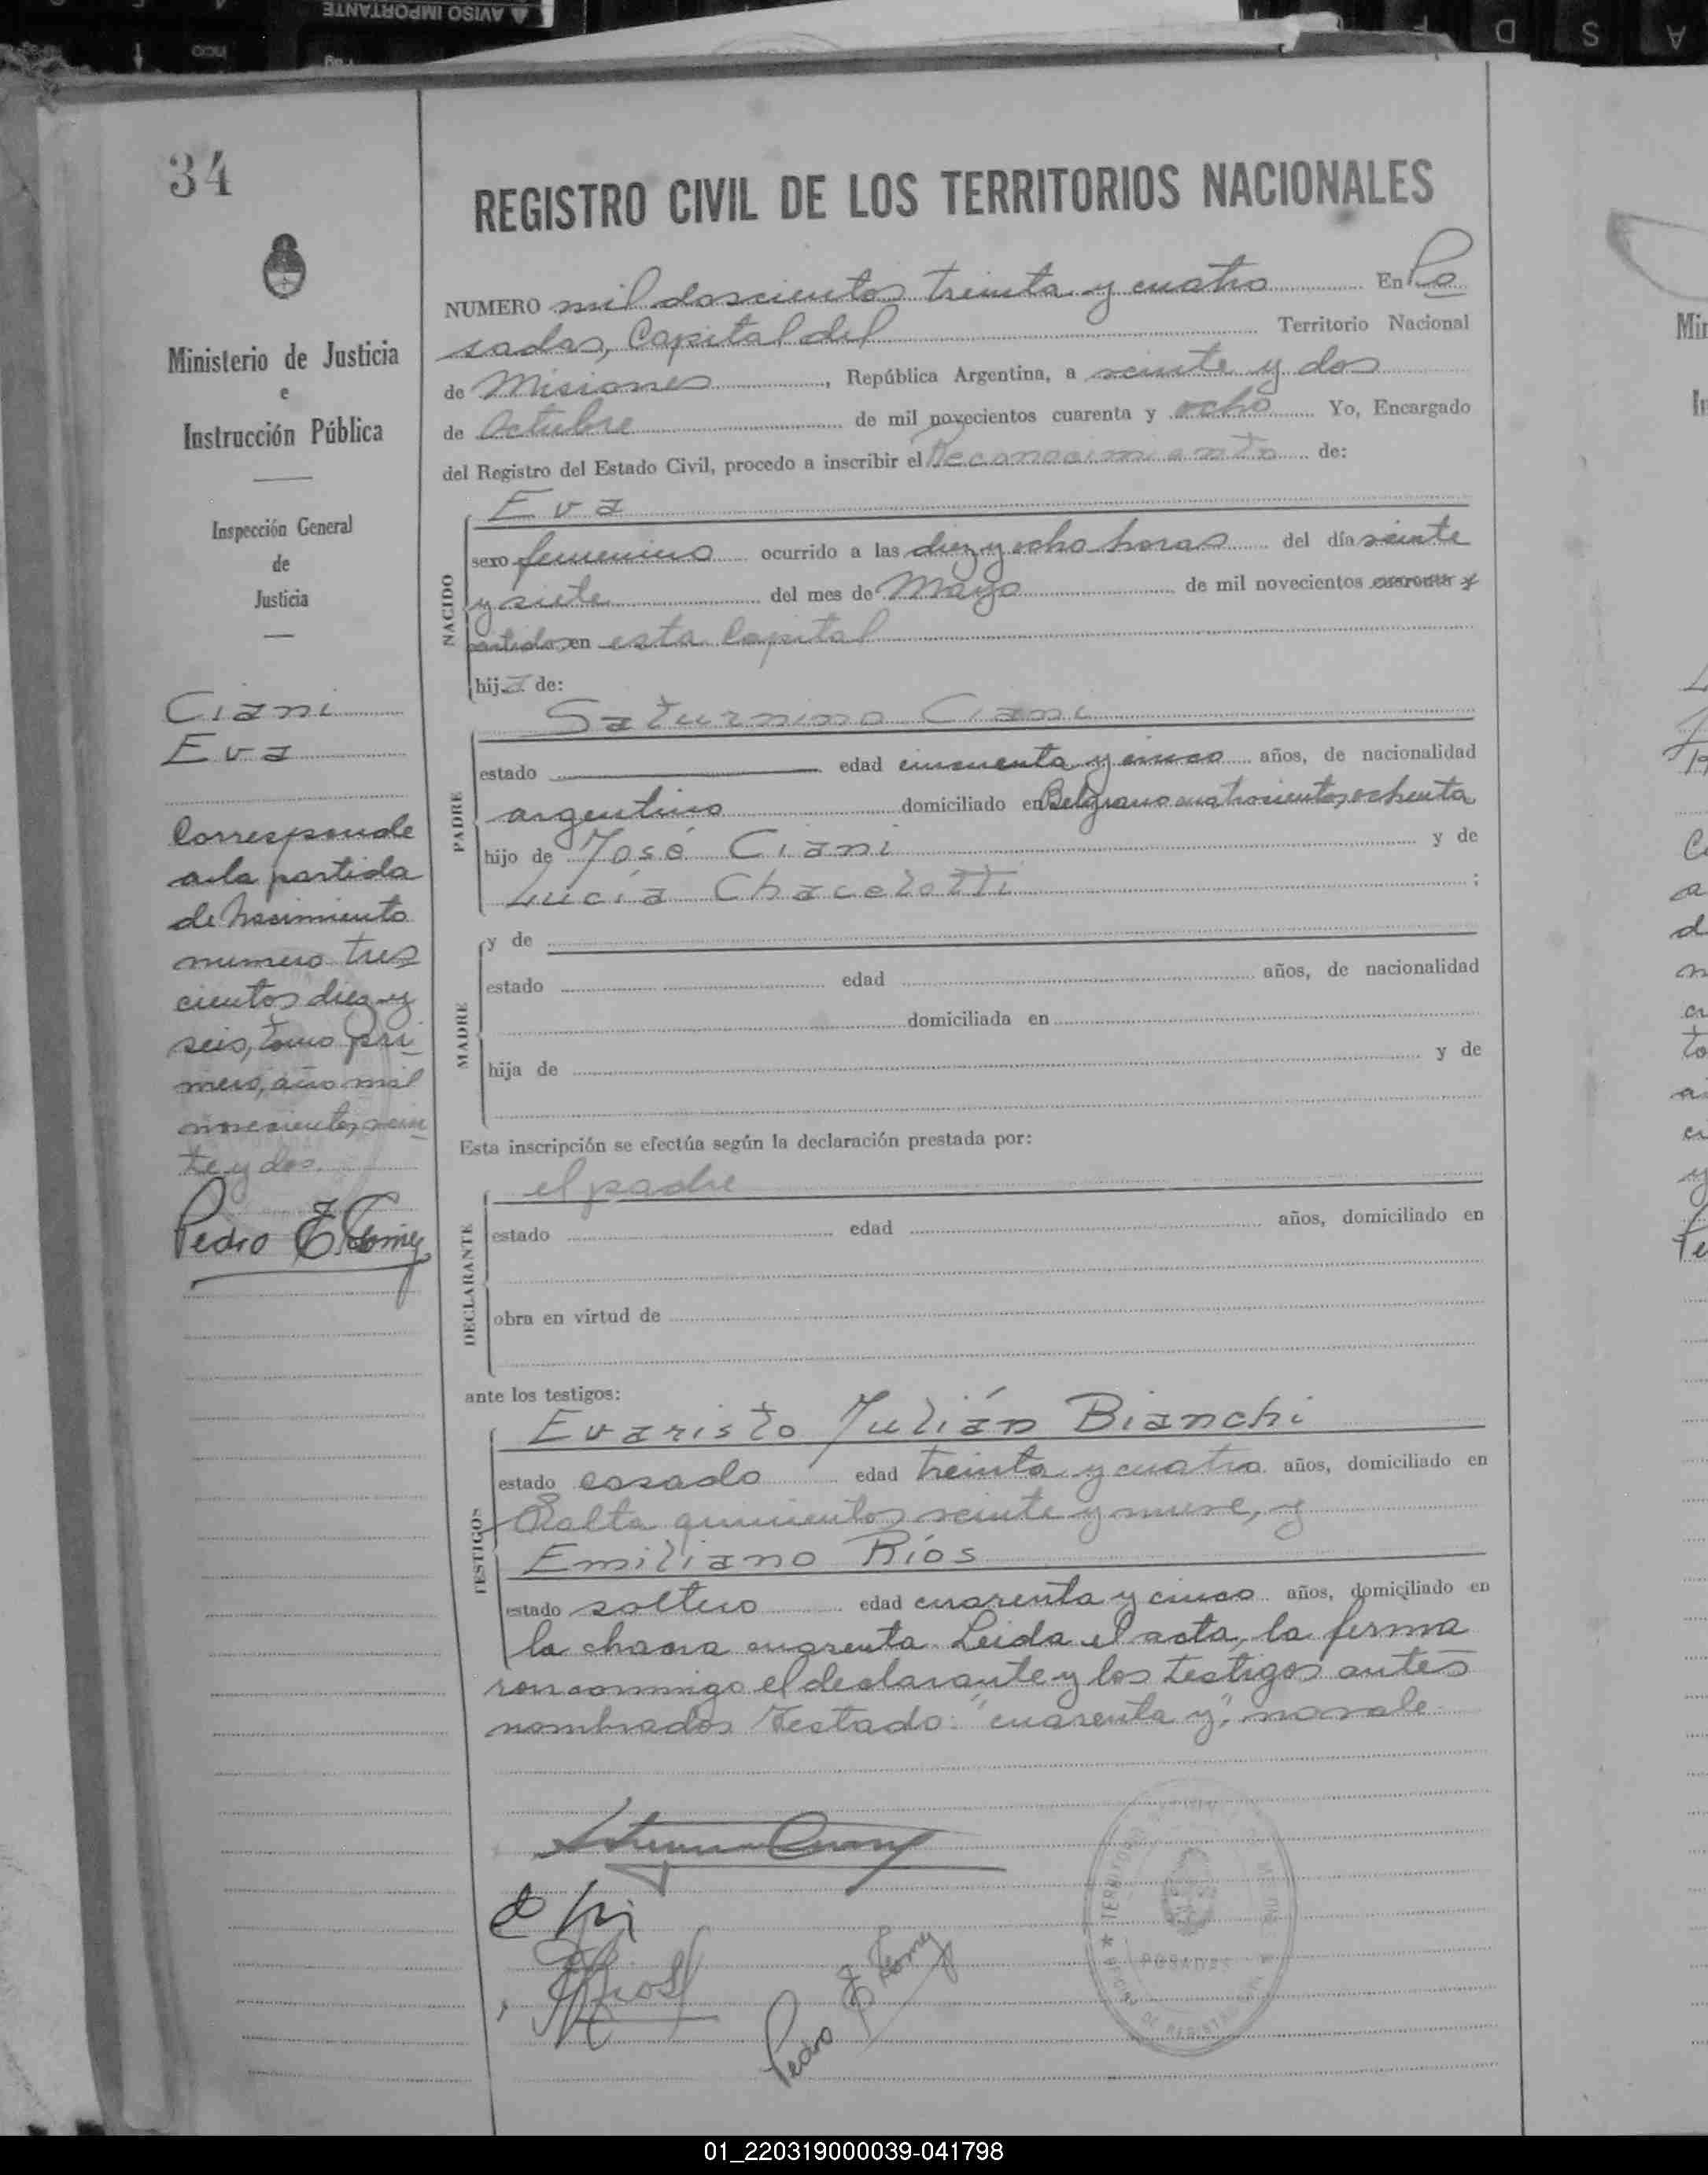 AVISO IMPORTANTE
34
REGISTRO CIVIL DE LOS TERRITORIOS NACIONALES
NUMERO mil doscientos treinta y cuatro En Po
sadas, Capital del Territorio Nacional
de Misiones, República Argentina, a veinte y dos
de Octubre de mil novecientos cuarenta y ocho Yo, Encargado
del Registro del Estado Civil, procedo a inscribir el Reconocimiento de:
Ministerio de Justicia
e
Instrucción Pública
Inspección General
de
Justicia
NACIDO
Eva
sexo femenino ocurrido a las diez y ocho horas del día veinte
y siete del mes de Mayo de mil novecientos cuarenta y
en esta Capital
hija de:
Ciani
Eva
Corresponde
a la partida
de Nacimiento
numero tres
cientos diez y
seis, tomo pri
mero, año mil
novecientos vein
te y dos.
Pedro E Gomez
PADRE
Saturnino Ciani
estado edad cincuenta y cinco años, de nacionalidad
argentino domiciliado en Belgrano cuatrocientos ochenta
hijo de José Ciani y de
Lucía Chacelotti ;
MADRE
y de
estado edad años, de nacionalidad
domiciliada en
hija de y de
Esta inscripción se efectúa según la declaración prestada por:
DECLARANTE
el padre
estado edad años, domiciliado en
obra en virtud de
ante los testigos:
TESTIGOS
Evaristo Julián Bianchi
estado casado edad treinta y cuatro años, domiciliado en
Salta quinientos veinte y nueve, y
Emiliano Ríos
estado soltero edad cuarenta y cinco años, domiciliado en
la chacra cuarenta Leida el acta, la firma
ron conmigo el declarante y los testigos antes
nombrados Testado: "cuarenta y", no vale
Pedro E Gomez
POSADAS
01_220319000039-041798